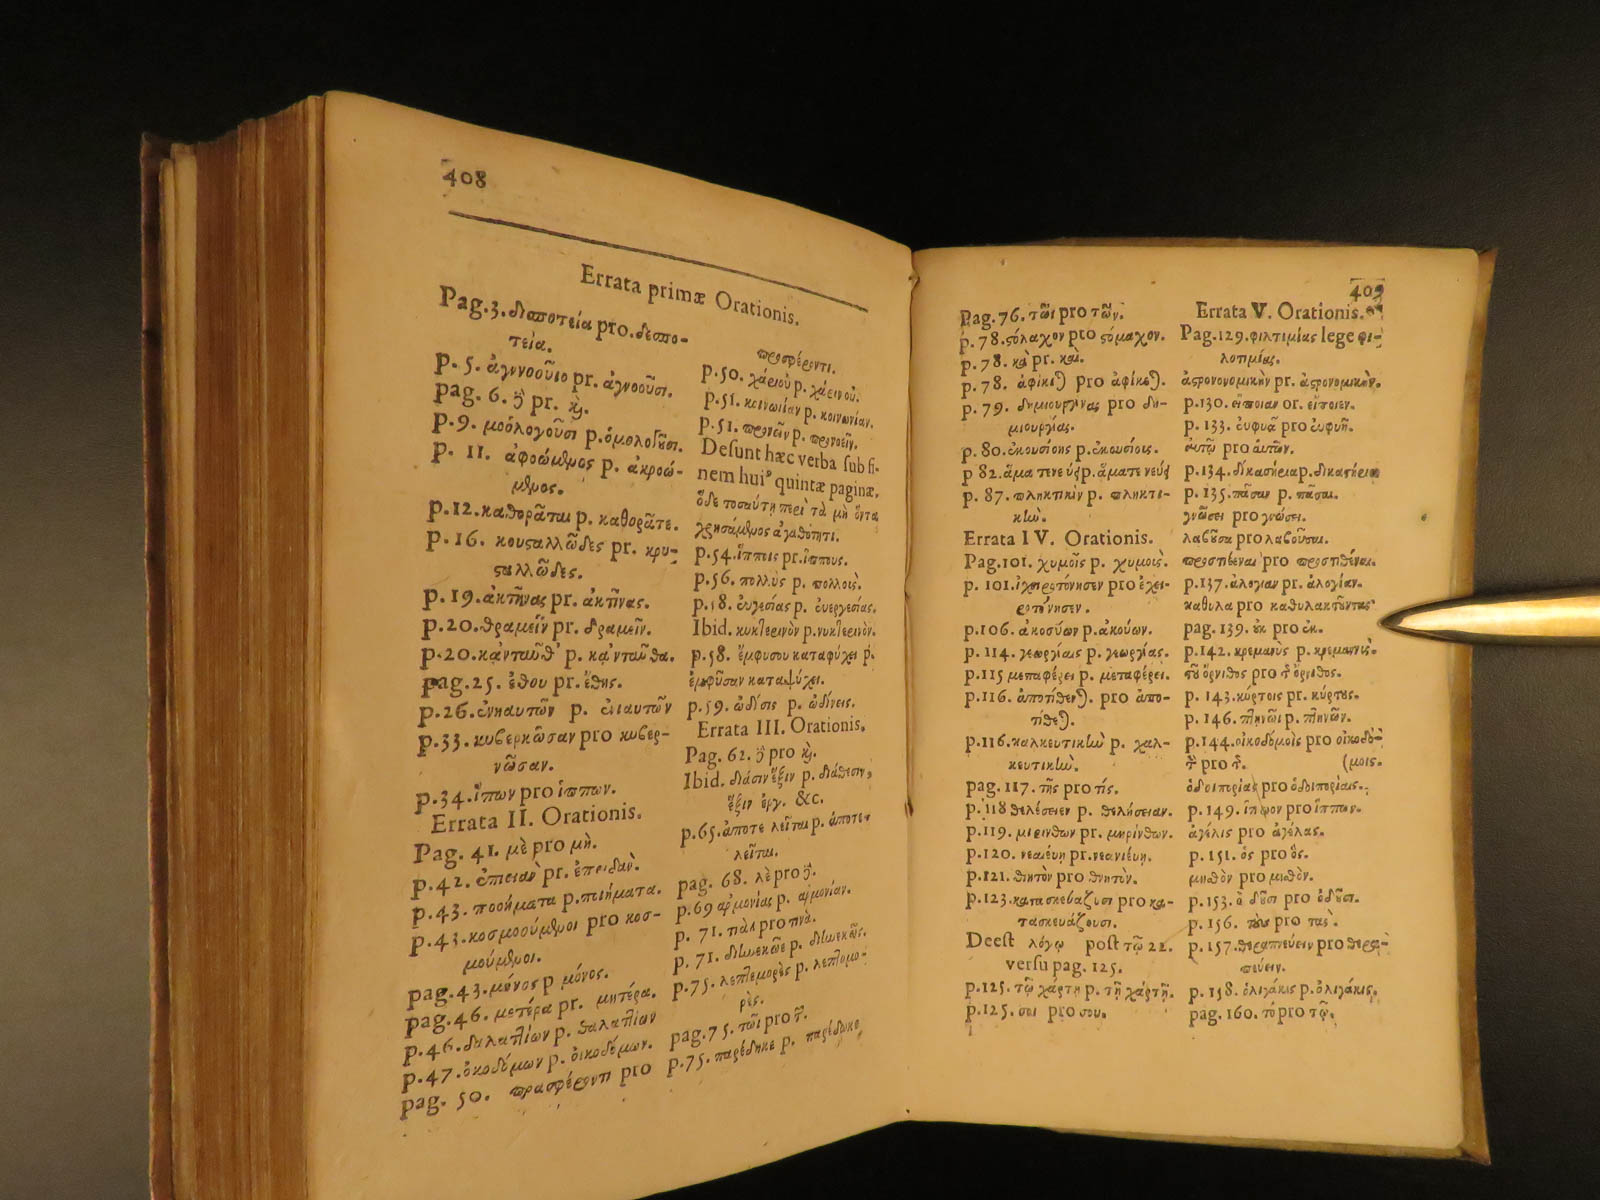 408
Errata primæ Orationis.
Pag. 3. δισποτεία pro. δεσπο-
τεία.
p. 5. ἀγννοοῦισ pr. ἀγνοοῦσι.
pag. 6. pr. κὶ.
p. 9. μοόλογοῦσι p. ὁμολογοῦσι.
p. 11. ἀφοώμενος p. ἀκροώ-
μενος.
p. 12. καθορᾶται p. καθορᾶτε.
p. 16. κουσαλλῶδες pr. κρυ-
σαλλῶδες.
p. 19. ἀκτῆνας pr. ἀκτῖνας.
p. 20. θραμεῖν pr. δραμεῖν.
p. 20. κἀνταῦθ' p. κἀνταῦθα.
pag. 25. ἔθου pr. ἔθης.
p. 26. ἐνηαυτῶν p. ἐνιαυτῶν
p. 33. κυβερκῶσαν pro κυβερ-
νῶσαν.
p. 34. ἵπων pro ἵππων.
Errata II. Orationis.
Pag. 41. μὲ pro μὴ.
p. 42. pr. ἐπειδὰν.
p. 43. ποοήματα p. ποιήματα.
p. 43. κοσμοούμενοι pro κοσ-
μούμενοι.
pag. 43. μόνος p μόνος.
pag. 46. μετέρα pr. μητέρα.
p. 46. p. θαλαττίων
p. 47. ὀκοδόμων p. οἰκοδόμων.
pag. 50. πρασφέροντι pro
προσφέροντι.
p. 50. p. χάριν οὐ.
p. 51. κοινωιίαν p. κοινωνίαν.
p. 51. p. προνοεῖν.
Desunt hæc verba sub fi-
nem hui⁹ quintæ paginæ.
ὅδε τοσαύτη περὶ τὰ μὴ ὄντα
χρησάμενος ἀγαθότητι.
p. 54. ἵππεις pr. ἵππους.
p. 56. πολλὺς p. πολλοὶς.
p. 58. p. ἐυεργεσίας.
Ibid. κυκτερινὸν p. νυκτερινὸν.
p. 58. ἔμφυσου καταφύχει p.
ἐμφῦσαν καταψύχει.
p. 59. ὠδίσις p. ὠδίνεις.
Errata III. Orationis.
Pag. 62. pro κὶ.
Ibid. p. διάθεσιν,
ἕξιν ἐργ. &c.
p. 65. ἀποτε λεῖται p. ἀποτε-
λεῖται.
pag. 68. λὲ pro
p. 69 p. ἁρμονίαν.
p. 71. πὰλ pro πνὰ.
p. 71. διωεκῶε p. διωεκῶς.
p. 75. λεπτεμορὲς p. λεπτομο-
ρὲς.
pag. 75. τῶι pro
p. 75. παρέδηκε p. παρέδωκε
409
Pag. 76. τῶι pro τῶν.
p. 78. σόλαχον pro σόμαχον.
p. 78. pr. καὶ.
p. 78. ἀφίκεται pro ἀφίκετο.
p. 79. δημιουργινας pro δη-
μιουργίας.
p. 80. ἐκουσίοης p. ἐκουσίοις.
p 82. p.
p. 87. πληκτικὶν p. πληκτι-
κὼ.
Errata IV. Orationis.
Pag. 101. χυμοῖς p. χυμοὶς.
p. 101. ἐχηροτόνησεν pro ἐχει-
ροτόνησεν.
p. 106. ἀκοσύων p. ἀκούων.
p. 114. γεωργίαις p. γεωργίας.
p. 115 μεπαφέρει p. μεταφέρει.
p. 116. pro ἀπο-
τίθεται.
p. 116. καλκευτικὼ p. χαλ-
κευτικὼ.
pag. 117. τῆς pro τίς.
p. 118 θελέσειεν p. θελήσειαν.
p. 119. μιρινθων pr. μηρίνθων.
p. 120. pr. νεανιέυη.
p. 121. θιητὸν pro θνητὸν.
p. 123. κατασκεύαζυσι pro κα-
τασκευάζουσι.
Deest λόγῳ post τῷ 22.
versu pag. 125.
p. 125. τῷ χάρτη p. τῇ χάρτῃ.
p. 125. σοι pro σου.
Errata V. Orationis.
Pag. 129. φιλτιμίας lege φι-
λοτιμίας.
ἀστρονονομικὴν pr. ἀστρονομικὴν.
p. 130. εἴποιαν or. εἴποιεν.
p. 133. ἐυφυᾶ pro ἐυφυῆ.
pro ἀυτῶν.
p. 134. p.
p. 135. πᾶσαν p. πᾶσαι.
γνῶσει pro γνώσει.
λαβοῦσα pro λαβοῦσαι.
προστιθεναι pro προστιθέναι.
p. 137. ἀλογιαν pr. ἀλογίαν.
καθυλα pro καθυλακτοῦντας
pag. 139. ἐκ pro ἐκ.
p. 142. κρεμανὺς p. κρεμαννὶς.
τοῦ ὄρνιθος pro ὄρνιθος.
p. 143. κύρτοις pr. κύρτους.
p. 146. πληνῶι p. πληνῶν.
p. 144. οἰκοδομοὶς pro οἰκοδό-
pro (μοις.
ὁδοιπρίας pro ὁδοιπορίας.
p. 149. pro ἵππων.
ἀγέλις pro ἀγέλας.
p. 151. ὁς pro ὃς.
μηθὸν pro μιθὸν.
p. 153. pro ὁδοῦσι.
p. 156. pro τας.
p. 157. θεραπνεύειν pro θερα-
πεύειν.
p. 158. ὀλιγάκις p. ὀλιγάκις.
pag. 160. τό pro τῷ.